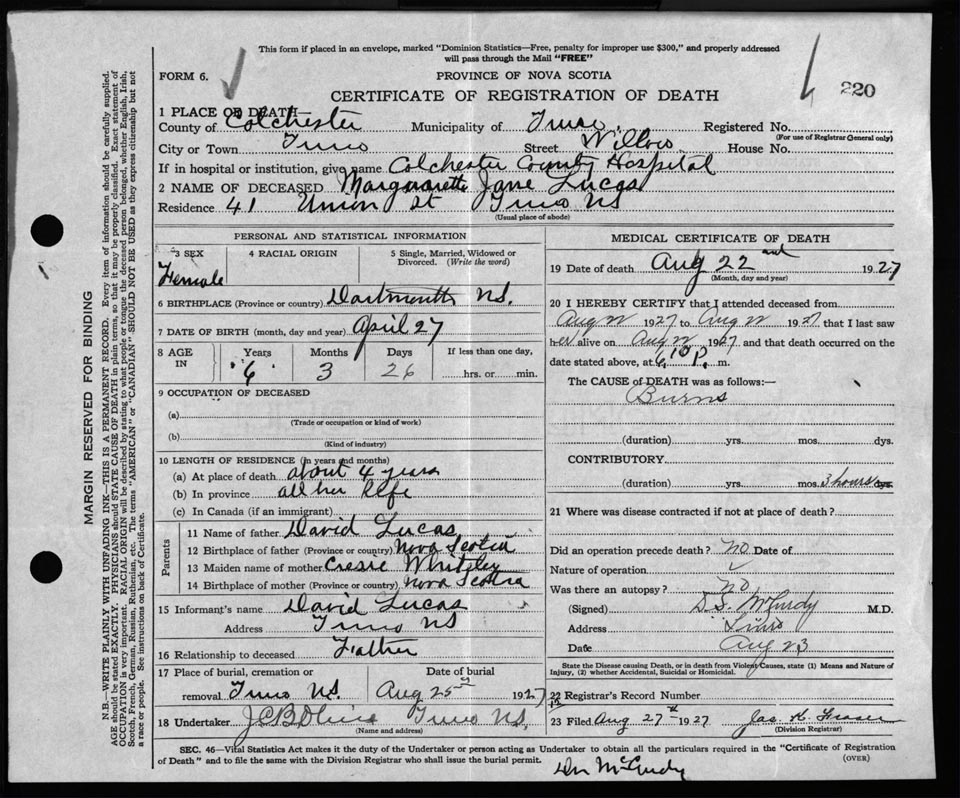 This form if placed in an envelope, marked "Dominion Statistics—Free, penalty for improper use $300," and properly addressed
will pass through the Mail "FREE"
FORM 6.
PROVINCE OF NOVA SCOTIA
220
CERTIFICATE OF REGISTRATION OF DEATH
1 PLACE OF DEATH—
County of Colchester Municipality of Truro Registered No.
(For use of Registrar General only)
City or Town Truro Street Willow House No.
If in hospital or institution, give name Colchester County Hospital
2 NAME OF DECEASED Margaraette Jane Lucas
Residence 41 Union St Truro NS
(Usual place of abode)
PERSONAL AND STATISTICAL INFORMATION
3 SEX 4 RACIAL ORIGIN 5 Single, Married, Widowed or
Divorced. (Write the word)
Female
6 BIRTHPLACE (Province or country) Dartmouth NS.
7 DATE OF BIRTH (month, day and year) April 27
8 AGE IN Years Months Days If less than one day,
6 3 26 hrs. or min.
9 OCCUPATION OF DECEASED
(a)
(Trade or occupation or kind of work)
(b)
(Kind of industry)
10 LENGTH OF RESIDENCE (in years and months)
(a) At place of death about 4 years
(b) In province all her life
(c) In Canada (if an immigrant)
Parents
11 Name of father David Lucas
12 Birthplace of father (Province or country) Nova Scotia
13 Maiden name of mother
14 Birthplace of mother (Province or country) Nova Scotia
15 Informant's name David Lucas
Address Truro NS
16 Relationship to deceased Father
17 Place of burial, cremation or Date of burial
removal Truro NS. Aug 25 1927
18 Undertaker Truro NS,
(Name and address)
MEDICAL CERTIFICATE OF DEATH
19 Date of death Aug 22nd 1927
(Month, day and year)
20 I HEREBY CERTIFY that I attended deceased from
Aug 22 1927 to Aug 22 1927 that I last saw
her alive on Aug 22 1927 and that death occurred on the
date stated above, at 6.10 P. m.
The CAUSE of DEATH was as follows:—
Burns
(duration) yrs. mos. dys.
CONTRIBUTORY
(duration) yrs. mos. 3 hours dys.
21 Where was disease contracted if not at place of death?
Did an operation precede death? No Date of
Nature of operation
Was there an autopsy? no
(Signed) D.S. McCurdy M.D.
Address Truro
Date Aug 23
State the Disease causing Death, or in death from Violent Causes, state (1) Means and Nature of
Injury, (2) whether Accidental, Suicidal or Homicidal.
22 Registrar's Record Number
23 Filed Aug 27th 1927 Jas. K. Fraser
(Division Registrar)
SEC. 46—Vital Statistics Act makes it the duty of the Undertaker or person acting as Undertaker to obtain all the particulars required in the "Certificate of Registration
of Death" and to file the same with the Division Registrar who shall issue the burial permit.
(OVER)
Dr McCurdy
MARGIN RESERVED FOR BINDING
N.B.—WRITE PLAINLY WITH UNFADING INK—THIS IS A PERMANENT RECORD. Every item of information should be carefully supplied.
AGE should be stated EXACTLY. PHYSICIANS should STATE CAUSE OF DEATH in plain terms, so that it may be properly classified. Exact statement of
OCCUPATION is very important. RACIAL ORIGIN will be described by stating to what people or tongue the deceased person belonged, whether English, Irish,
Scotch, French, German, Russian, Ruthenian, etc. The terms "AMERICAN" or "CANADIAN" SHOULD NOT BE USED as they express citizenship but not
a race or people. See instructions on back of Certificate.